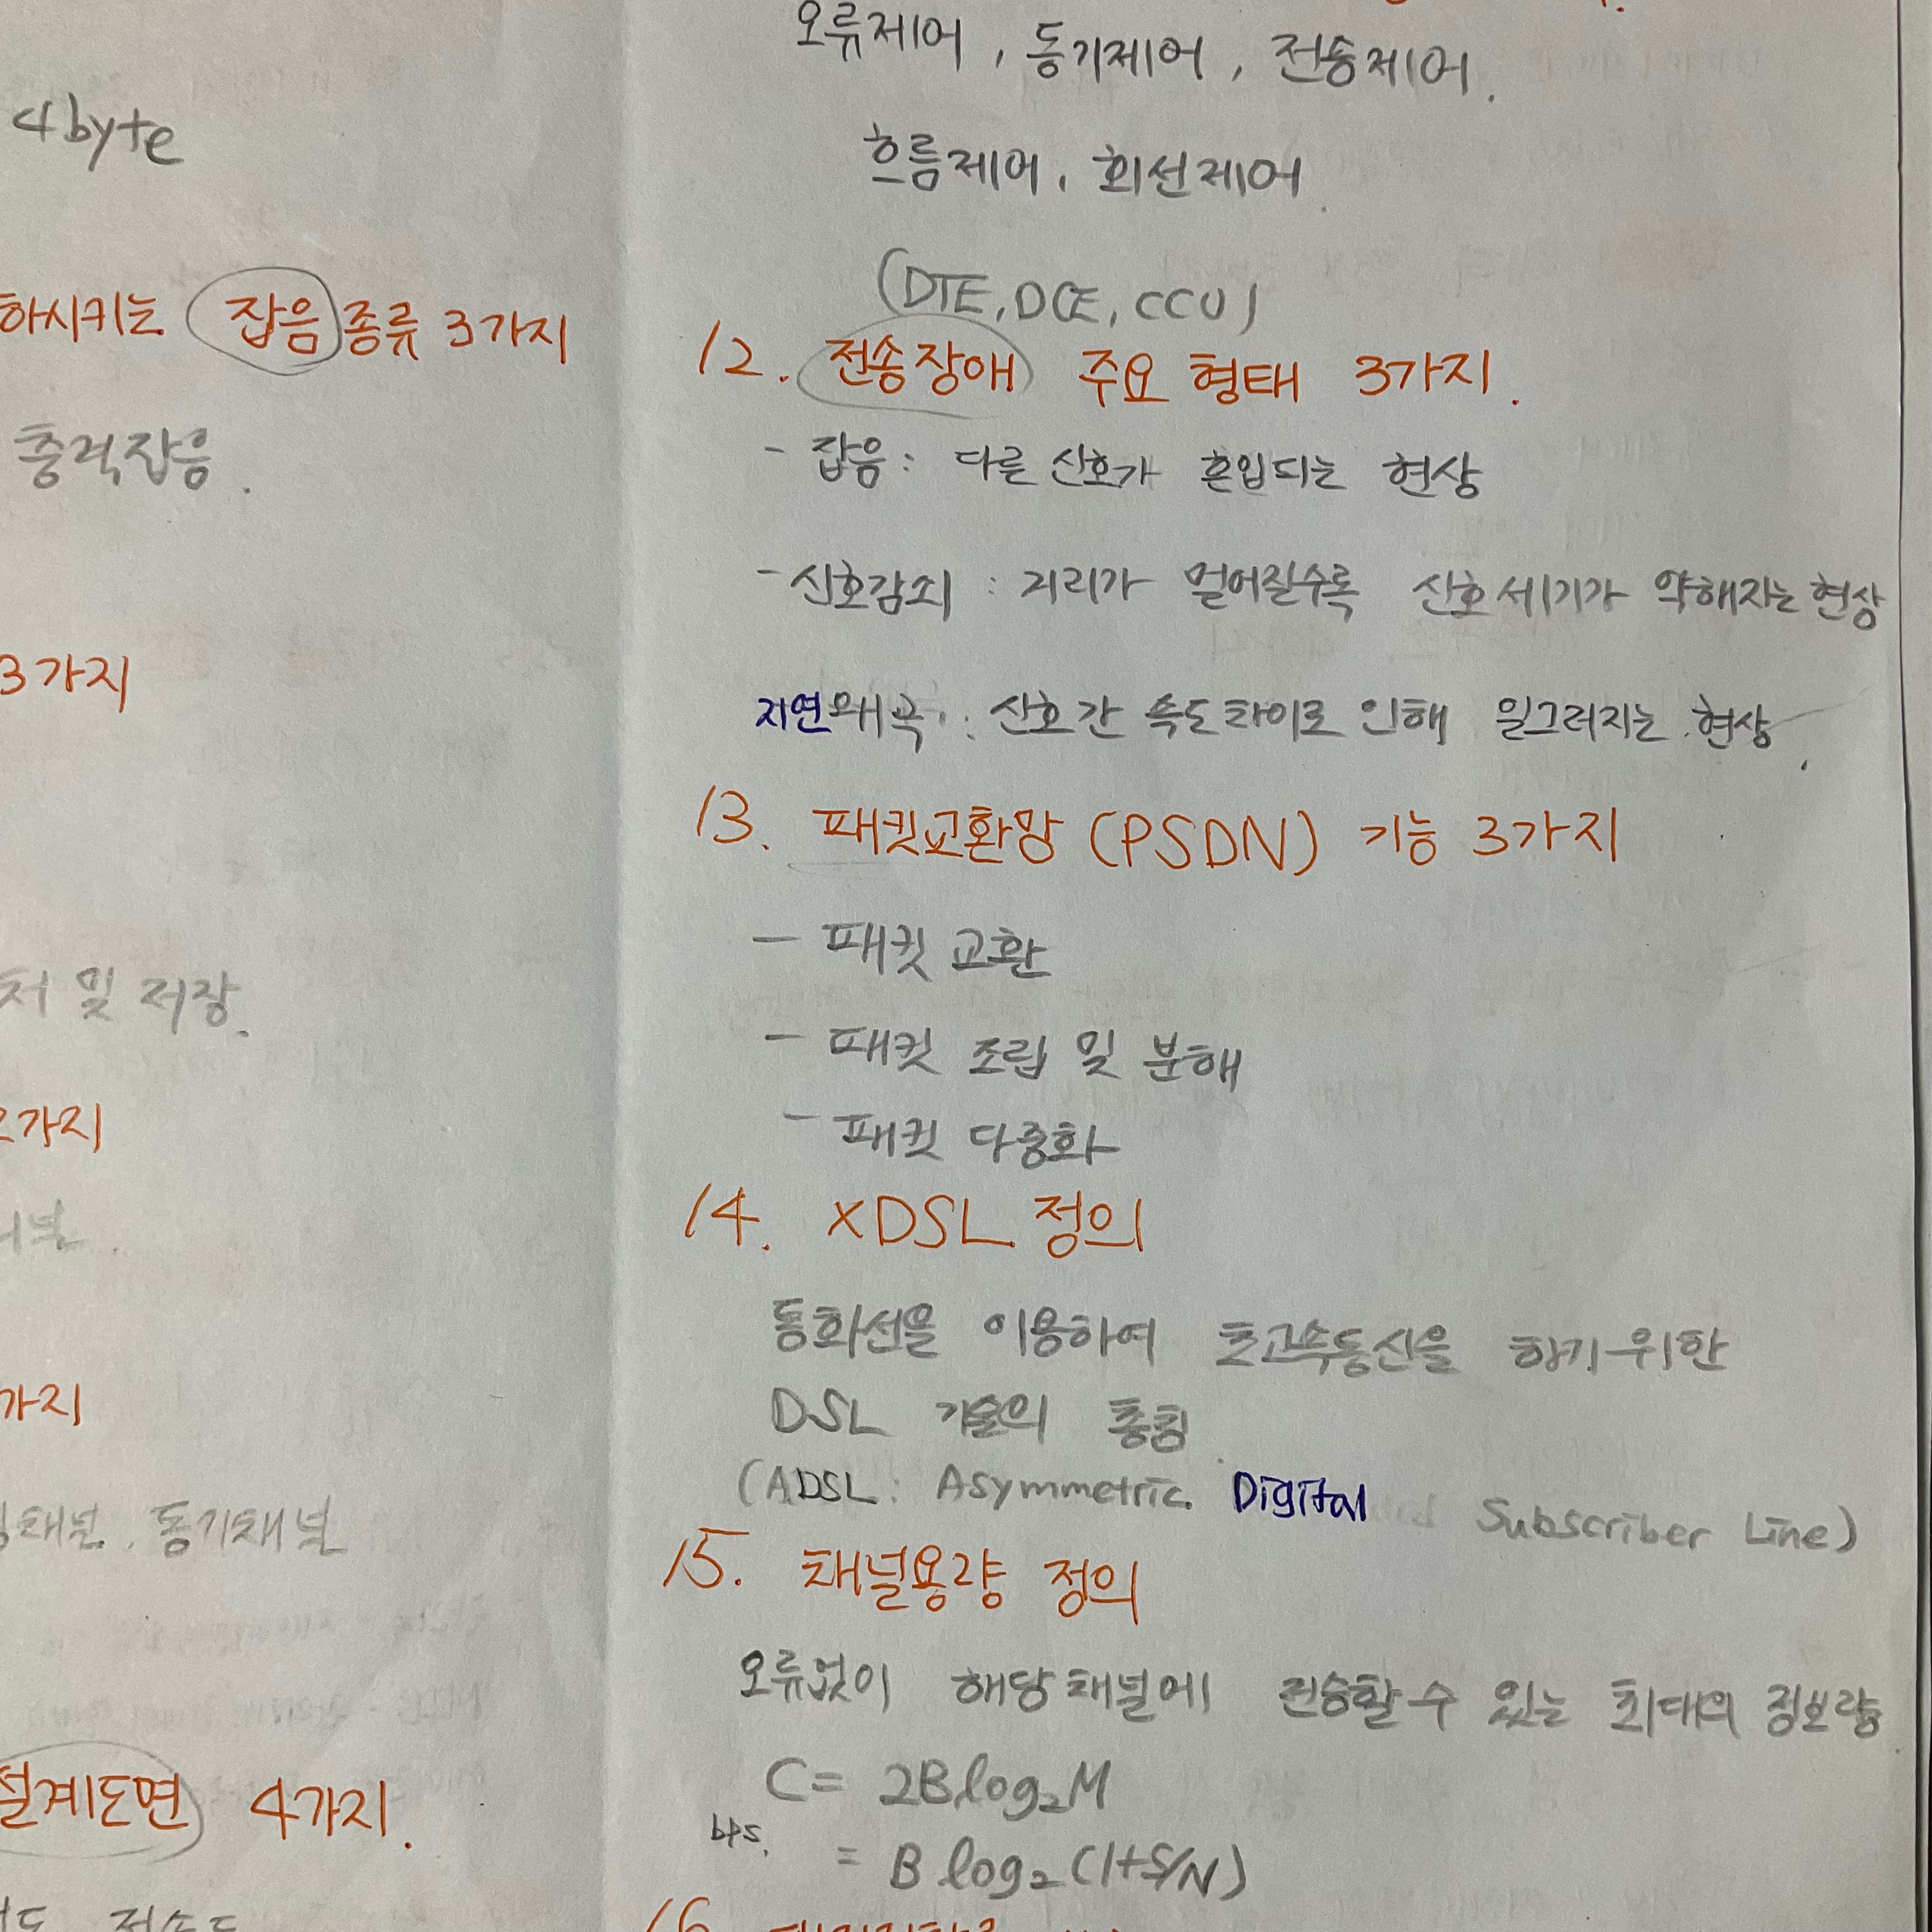 4byte
하시키는 잡음 종류 3가지
충격잡음.
3가지
처 및 저장.
2가지
널.
가지
채널, 동기채널
설계도면 4가지.
오류제어, 동기제어, 전송제어.
흐름제어, 회선제어.
(DTE, DCE, CCU)
12. 전송장애 주요 형태 3가지.
- 잡음: 다른 신호가 혼입되는 현상
- 신호감쇠 : 거리가 멀어질수록 신호세기가 약해지는 현상
지연왜곡 : 신호간 속도차이로 인해 일그러지는 현상.
13. 패킷교환망 (PSDN) 기능 3가지
- 패킷 교환
- 패킷 조립 및 분해
- 패킷 다중화
14. xDSL 정의
동화선을 이용하여 초고속통신을 하기 위한
DSL 기술의 총칭.
(ADSL: Asymmetric Digital Subscriber Line)
15. 채널용량 정의
오류없이 해당채널에 전송할 수 있는 최대의 정보량
C = 2B log₂M
bps.
= B log₂ (1+S/N)
16.